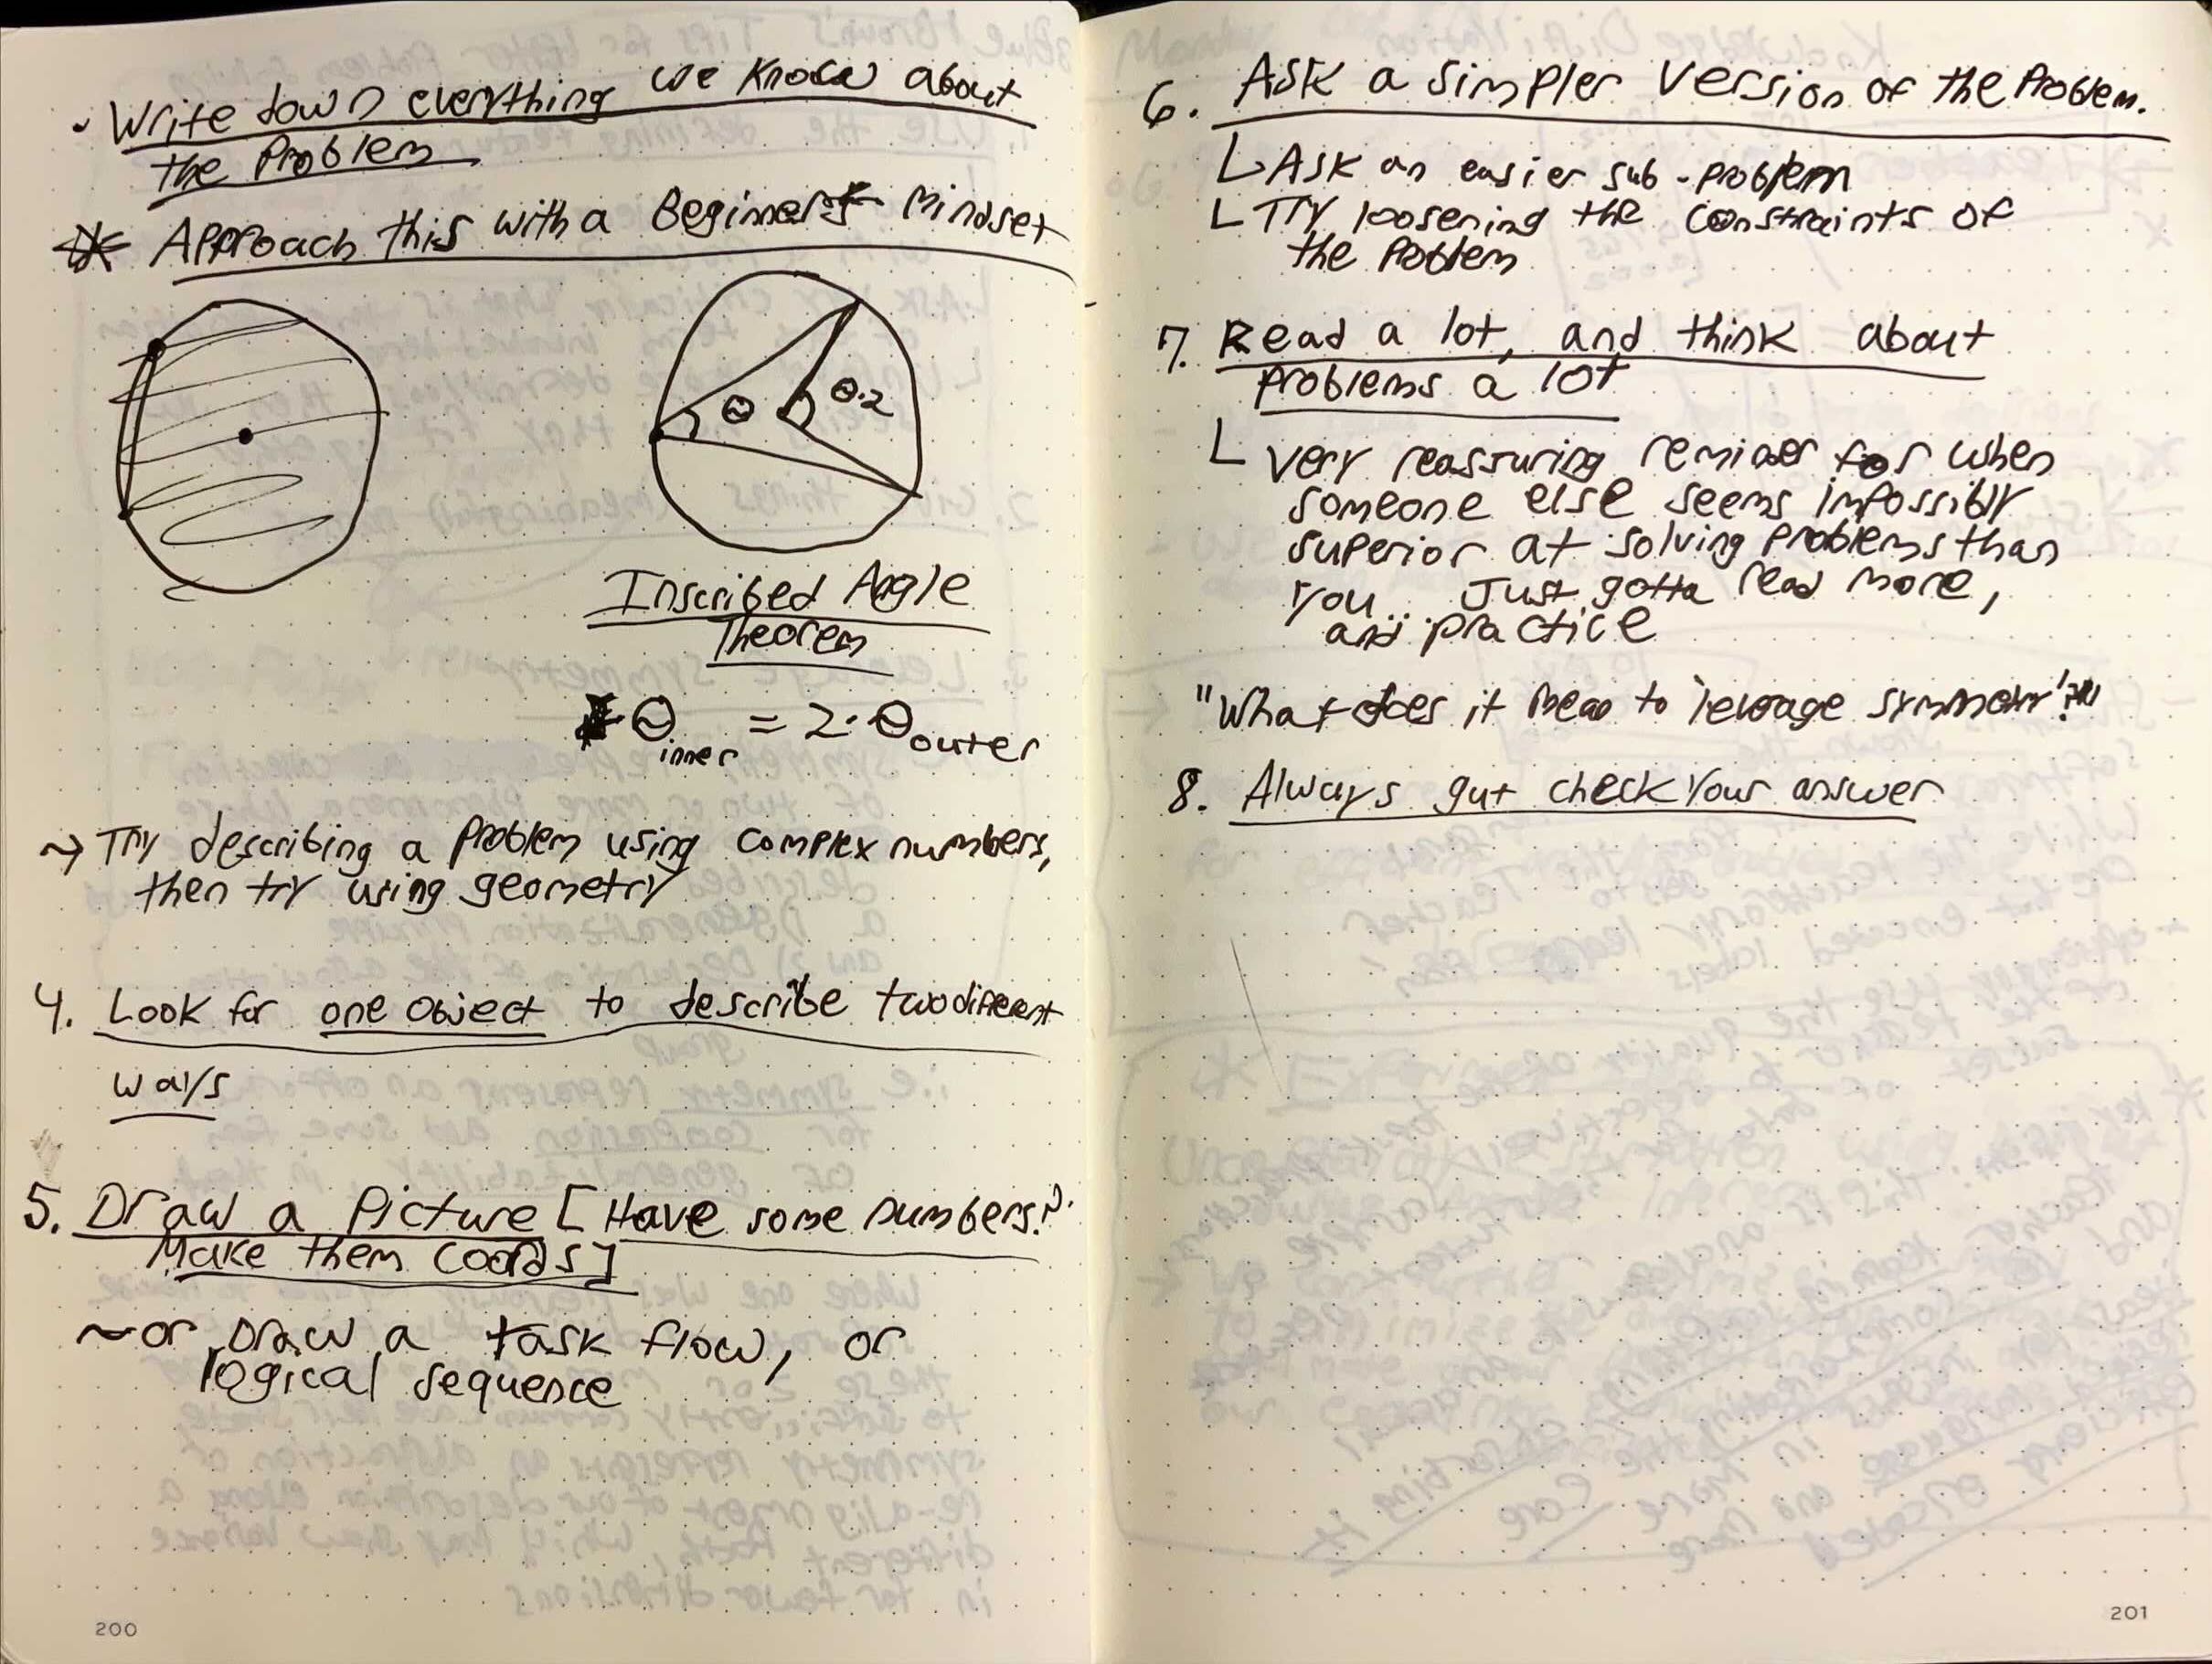 • Write down everything we know about
the Problem
* Approach this with a Beginners Mindset
θ
θ·2
Inscribed Angle
Theorem
θinner = 2·θouter
~> Try describing a problem using complex numbers,
then try using geometry
4. Look for one object to describe two different
ways
5. Draw a Picture [Have some numbers?
Make them coords]
~or Draw a task flow, or
logical sequence
200
6. Ask a simpler version of the Problem.
L Ask an easier sub-problem
L Try loosening the constraints of
the Problem
7. Read a lot, and think about
problems a lot
L very reassuring reminder for when
someone else seems impossibly
superior at solving problems than
you... Just gotta read more,
and practice
"What does it mean to 'leverage symmetry'?"
8. Always gut check your answer
201